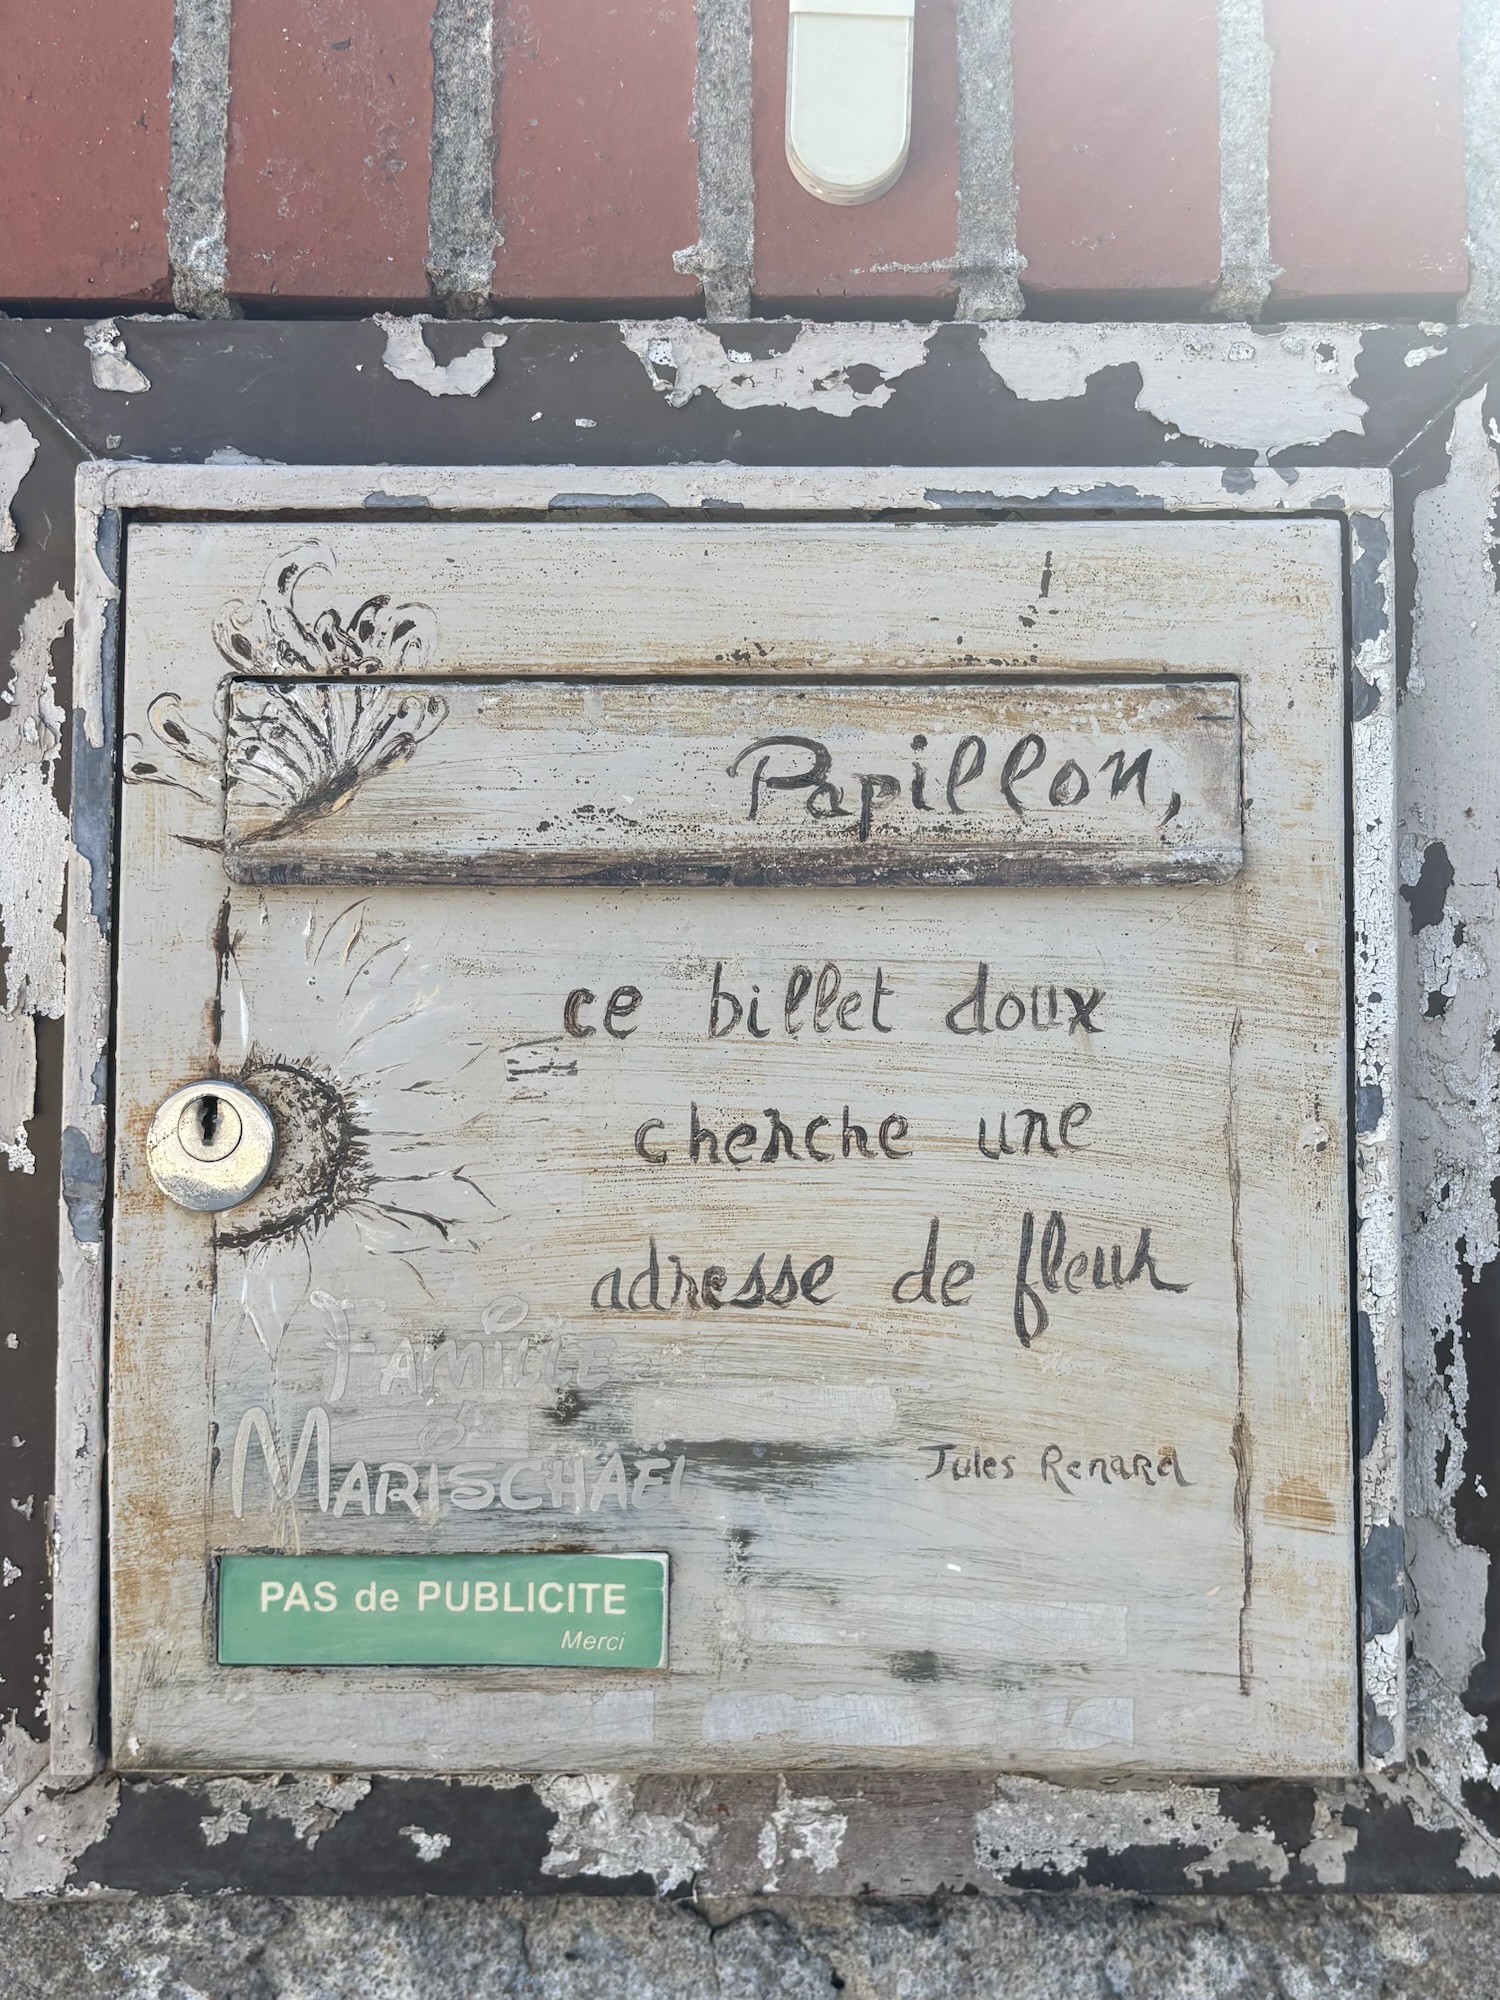 Papillon,
ce billet doux
cherche une
adresse de fleur
FAMILLE
MARISCHAËL
Jules Renard
PAS de PUBLICITE
Merci